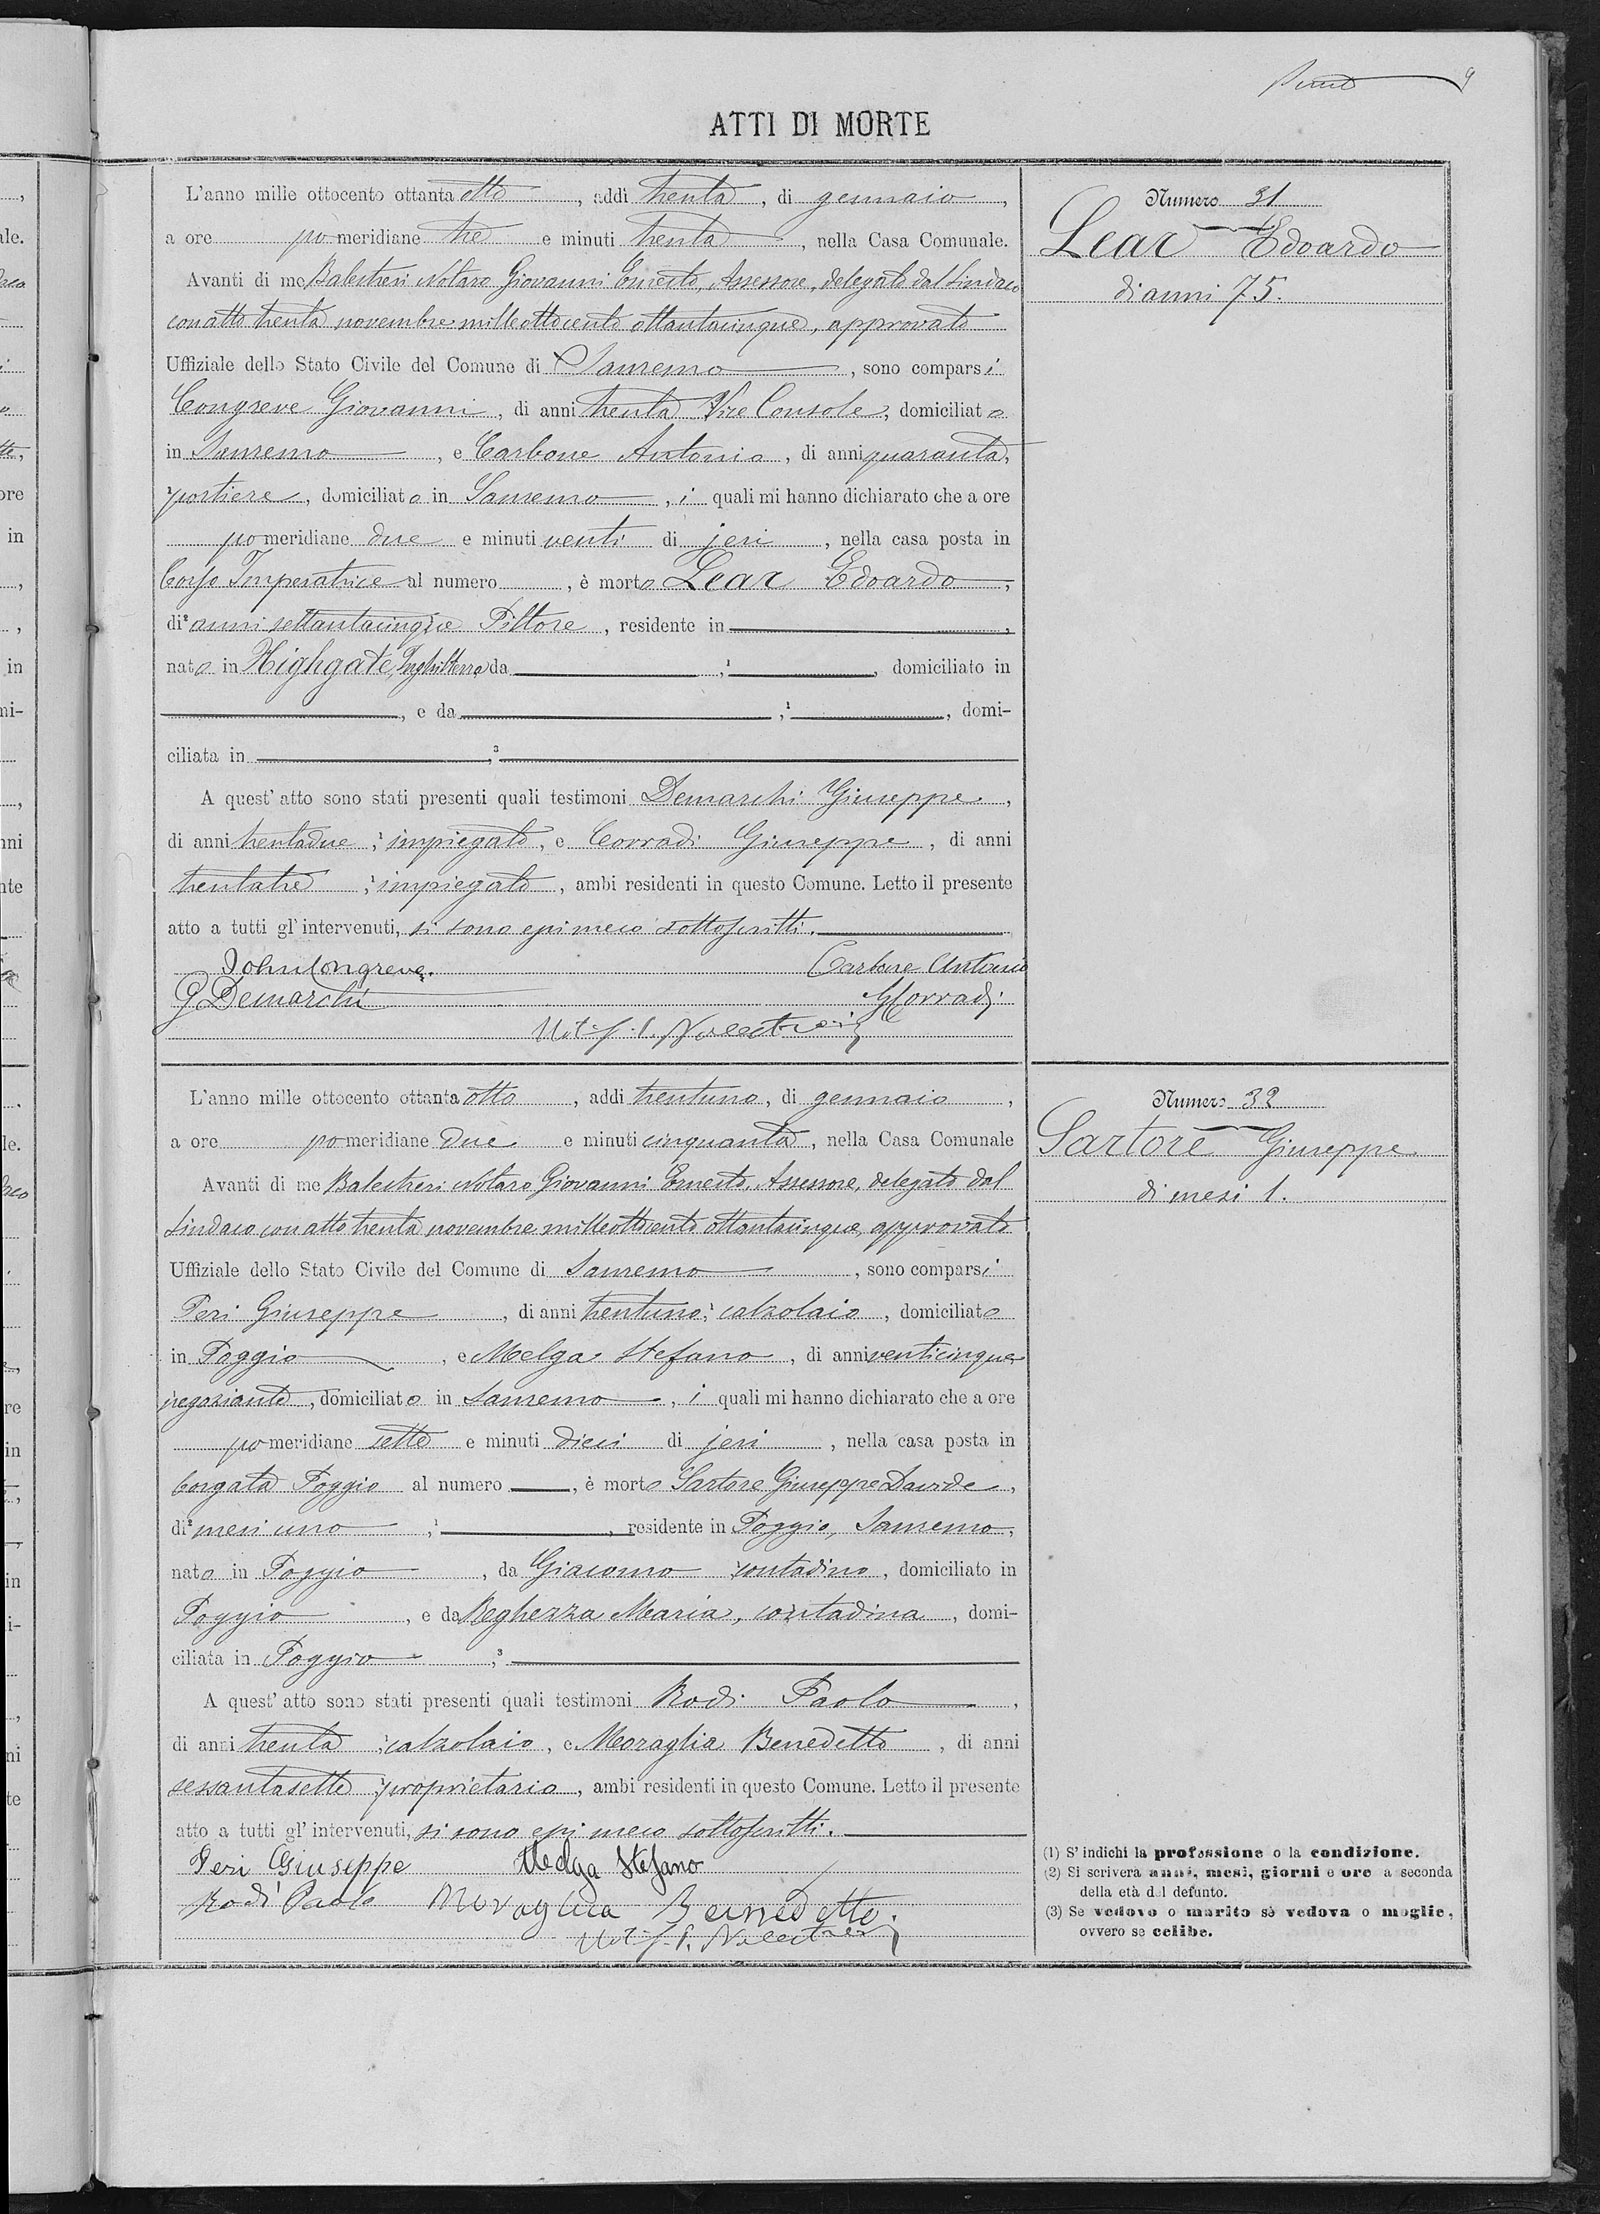 9
ATTI DI MORTE
L'anno mille ottocento ottanta otto, addì trenta, di gennaio,
a ore pomeridiane tre e minuti trenta, nella Casa Comunale.
Avanti di me Balestreri Notaro Giovanni Ernesto, Assessore, delegato dal Sindaco
con atto trenta novembre milleottocento ottantacinque, approvato
Uffiziale dello Stato Civile del Comune di Sanremo, sono comparsi
Congreve Giovanni, di anni trenta Vice Console, domiciliato
in Sanremo, e Carbone Antonio, di anni quaranta,
portiere, domiciliato in Sanremo, i quali mi hanno dichiarato che a ore
pomeridiane due e minuti venti di jeri, nella casa posta in
Corso Imperatrice al numero, è morto Lear Edoardo,
di anni settantacinque Pittore, residente in
nato in Highgate, Inghilterra da, domiciliato in
, e da, domi-
ciliata in
A quest'atto sono stati presenti quali testimoni Demarchi Giuseppe,
di anni trentadue, impiegato, e Corradi Giuseppe, di anni
trentatre, impiegato, ambi residenti in questo Comune. Letto il presente
atto a tutti gl'intervenuti, si sono essi meco sottoscritti.
John Congreve. Carbone Antonio
G. Demarchi G Corradi
Numero 31
Lear Edoardo
di anni 75.
L'anno mille ottocento ottanta otto, addì trentuno, di gennaio,
a ore pomeridiane due e minuti cinquanta, nella Casa Comunale
Avanti di me Balestreri Notaro Giovanni Ernesto, Assessore, delegato dal
Sindaco con atto trenta novembre milleottocento ottantacinque, approvato
Uffiziale dello Stato Civile del Comune di Sanremo, sono comparsi
Peri Giuseppe, di anni trentuno, calzolaio, domiciliato
in Poggio, e Melga Stefano, di anni venticinque
negoziante, domiciliato in Sanremo, i quali mi hanno dichiarato che a ore
pomeridiane sette e minuti dieci di jeri, nella casa posta in
borgata Poggio al numero, è morto Sartore Giuseppe Davide,
di mesi uno, residente in Poggio, Sanremo,
nato in Poggio, da Giacomo contadino, domiciliato in
Poggio, e da Reghezza Maria, contadina, domi-
ciliata in Poggio,
A quest'atto sono stati presenti quali testimoni Rodi Paolo,
di anni trenta calzolaio, e Moraglia Benedetto, di anni
sessantasette proprietario, ambi residenti in questo Comune. Letto il presente
atto a tutti gl'intervenuti, si sono essi meco sottoscritti.
Peri Giuseppe Melga Stefano
Rodi Paolo Moraglia Benedetto.
Numero 32
Sartore Giuseppe
di mesi 1.
(1) S'indichi la professione o la condizione.
(2) Si scriverà anni, mesi, giorni e ore a seconda
della età del defunto.
(3) Se vedovo o marito sè vedova o moglie,
ovvero se celibe.